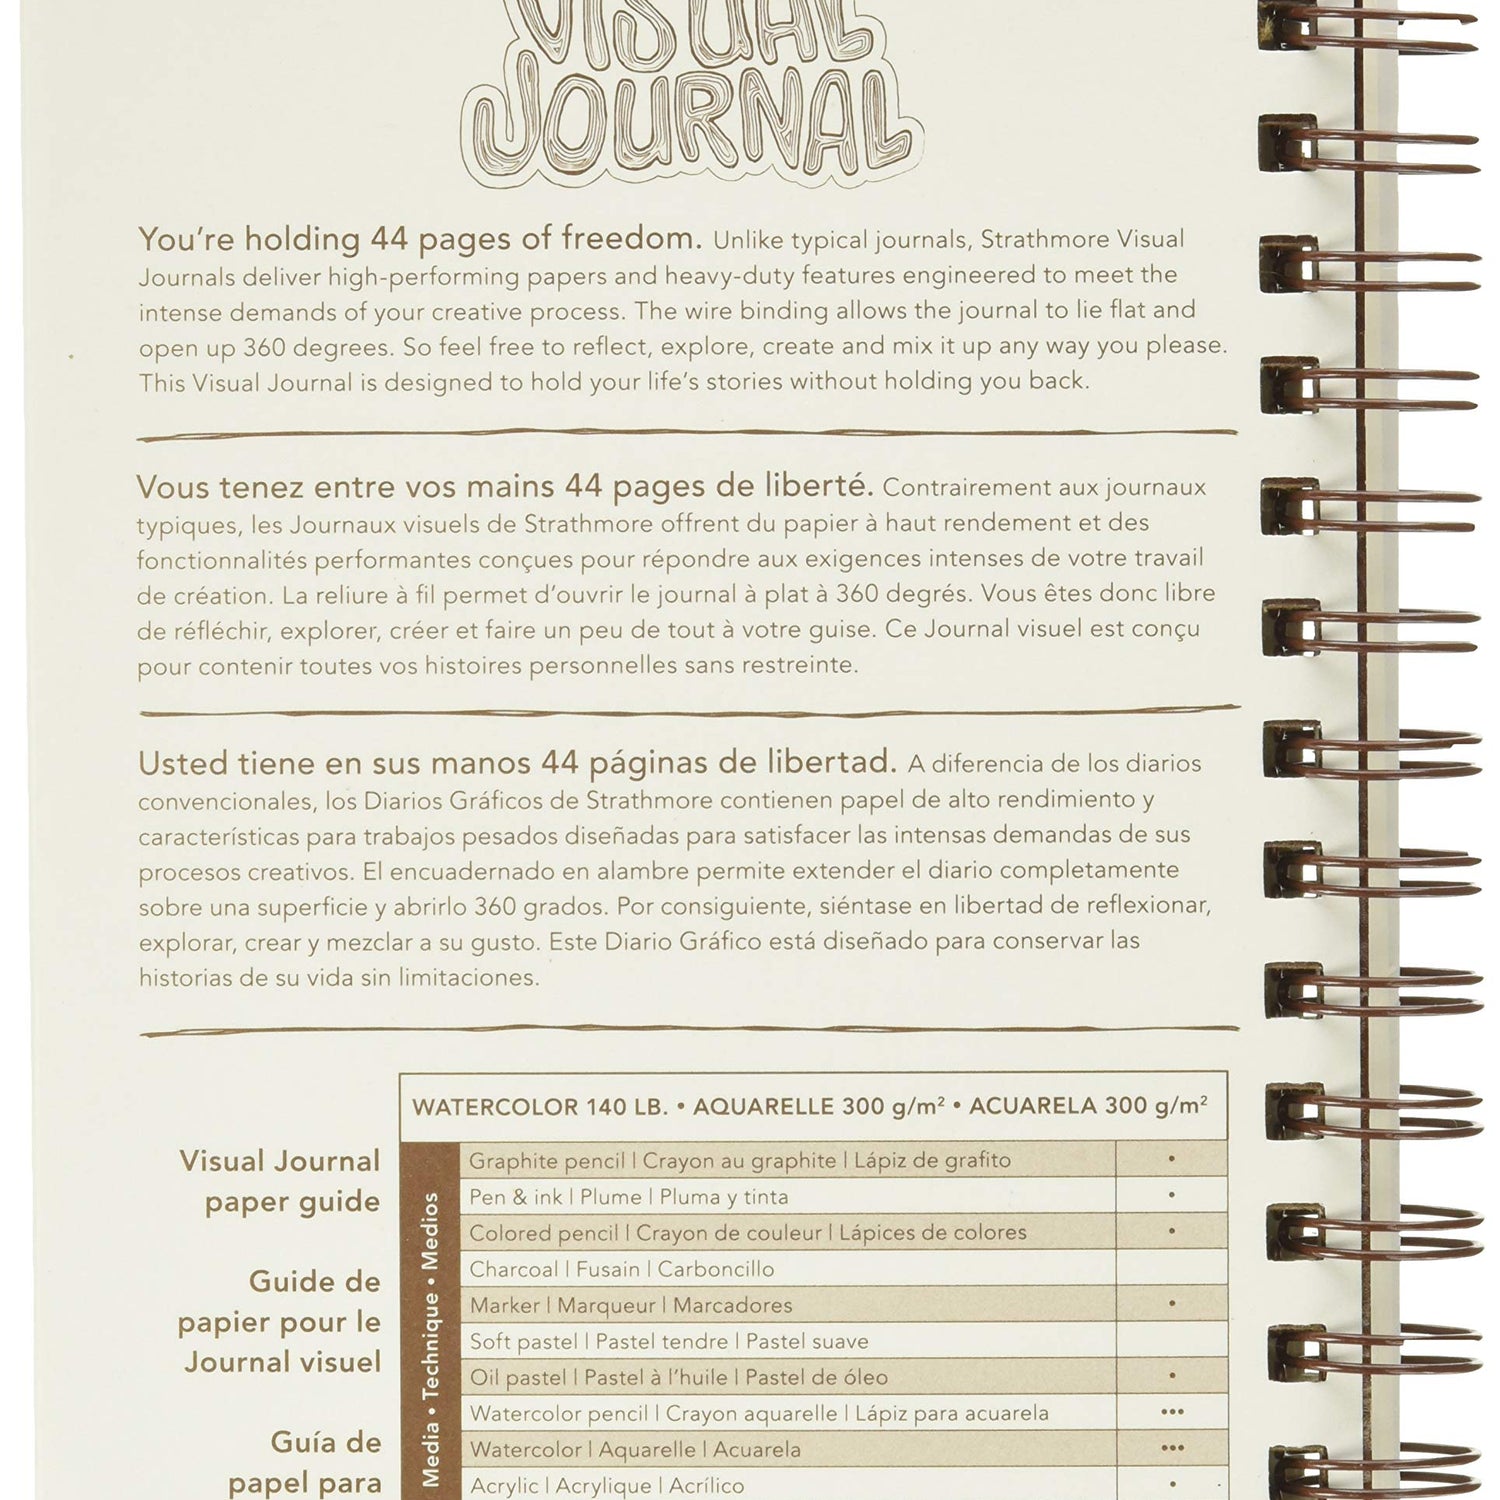 VISUAL
JOURNAL
You’re holding 44 pages of freedom. Unlike typical journals, Strathmore Visual
Journals deliver high-performing papers and heavy-duty features engineered to meet the
intense demands of your creative process. The wire binding allows the journal to lie flat and
open up 360 degrees. So feel free to reflect, explore, create and mix it up any way you please.
This Visual Journal is designed to hold your life’s stories without holding you back.
Vous tenez entre vos mains 44 pages de liberté. Contrairement aux journaux
typiques, les Journaux visuels de Strathmore offrent du papier à haut rendement et des
fonctionnalités performantes conçues pour répondre aux exigences intenses de votre travail
de création. La reliure à fil permet d’ouvrir le journal à plat à 360 degrés. Vous êtes donc libre
de réfléchir, explorer, créer et faire un peu de tout à votre guise. Ce Journal visuel est conçu
pour contenir toutes vos histoires personnelles sans restreinte.
Usted tiene en sus manos 44 páginas de libertad. A diferencia de los diarios
convencionales, los Diarios Gráficos de Strathmore contienen papel de alto rendimiento y
características para trabajos pesados diseñadas para satisfacer las intensas demandas de sus
procesos creativos. El encuadernado en alambre permite extender el diario completamente
sobre una superficie y abrirlo 360 grados. Por consiguiente, siéntase en libertad de reflexionar,
explorar, crear y mezclar a su gusto. Este Diario Gráfico está diseñado para conservar las
historias de su vida sin limitaciones.
Visual Journal
paper guide
Guide de
papier pour le
Journal visuel
Guía de
papel para
WATERCOLOR 140 LB. • AQUARELLE 300 g/m² • ACUARELA 300 g/m²
Media • Technique • Medios
Graphite pencil | Crayon au graphite | Lápiz de grafito •
Pen & ink | Plume | Pluma y tinta •
Colored pencil | Crayon de couleur | Lápices de colores •
Charcoal | Fusain | Carboncillo
Marker | Marqueur | Marcadores •
Soft pastel | Pastel tendre | Pastel suave
Oil pastel | Pastel à l’huile | Pastel de óleo •
Watercolor pencil | Crayon aquarelle | Lápiz para acuarela •••
Watercolor | Aquarelle | Acuarela •••
Acrylic | Acrylique | Acrílico •